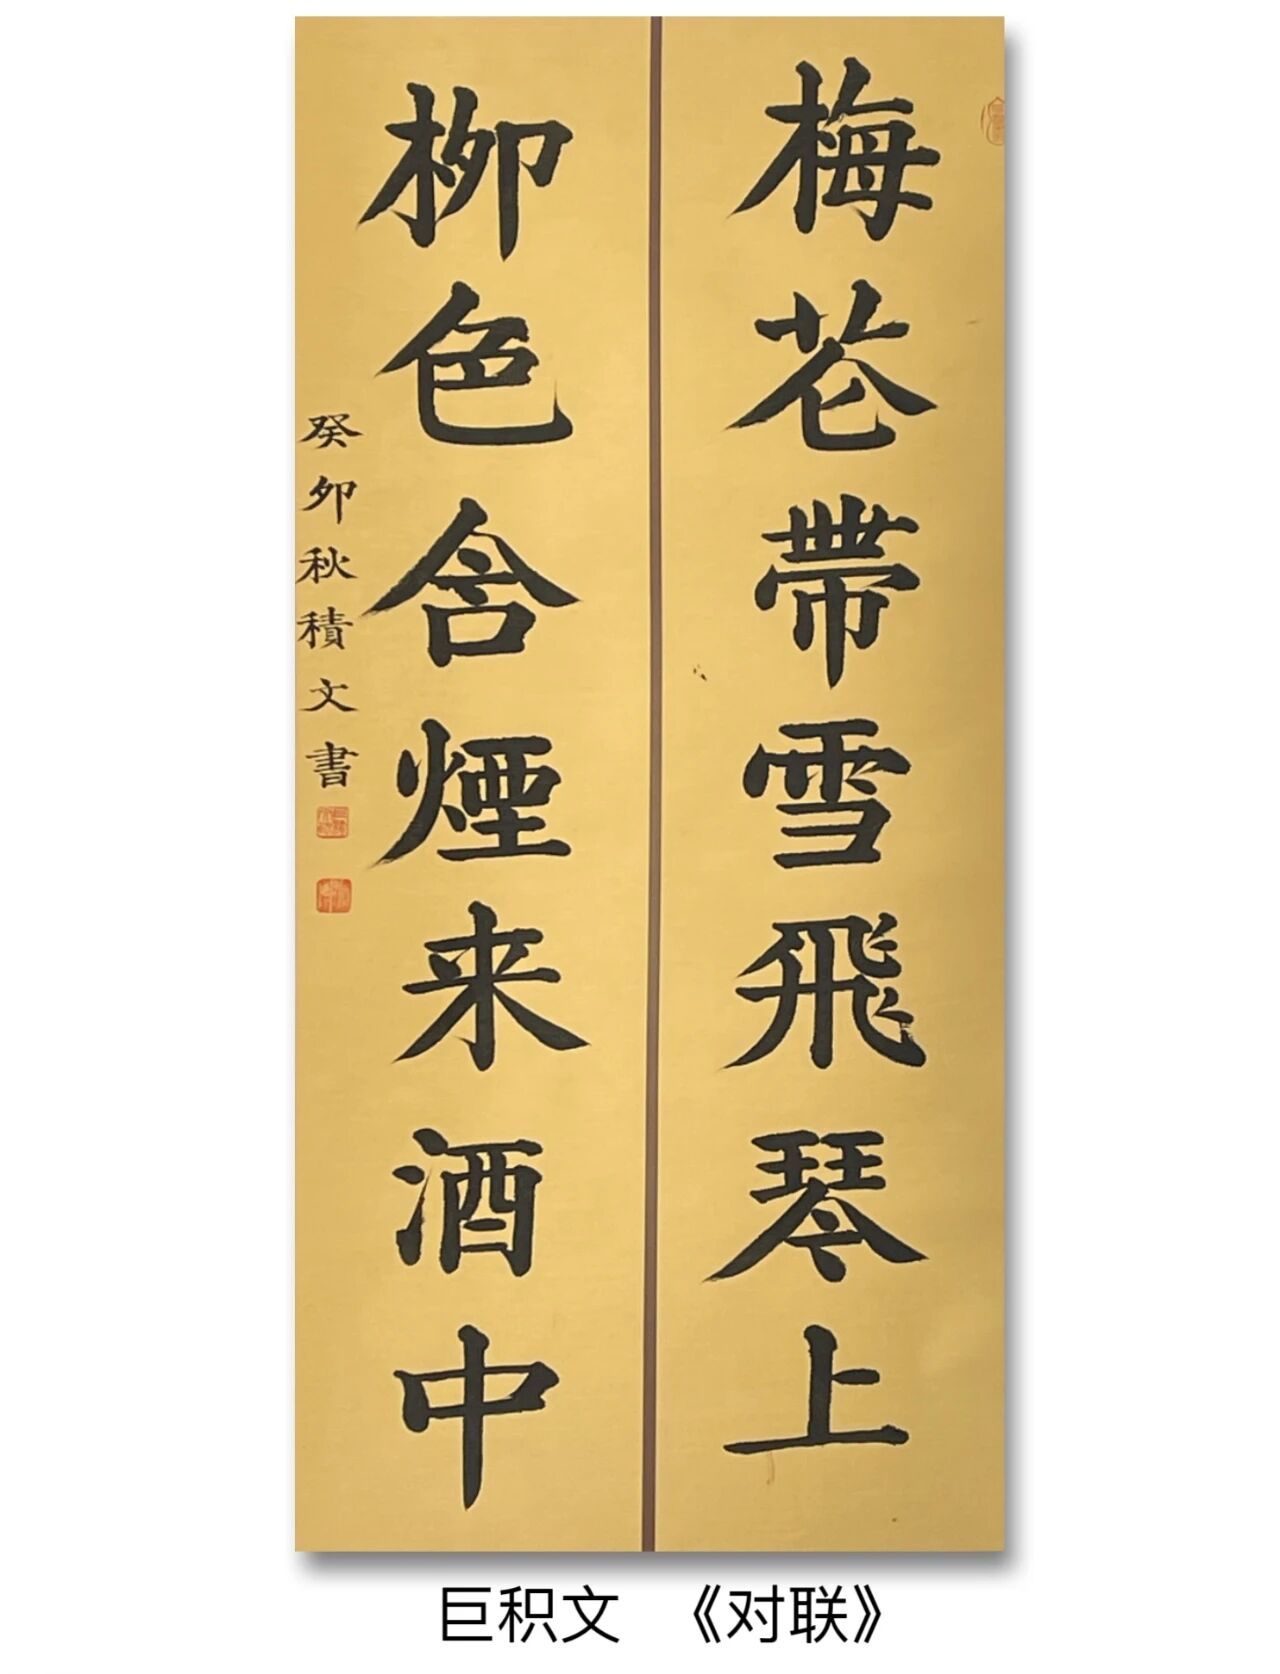 梅花带雪飛琴上
柳色含煙来酒中
癸卯秋積文書
巨积文 《对联》